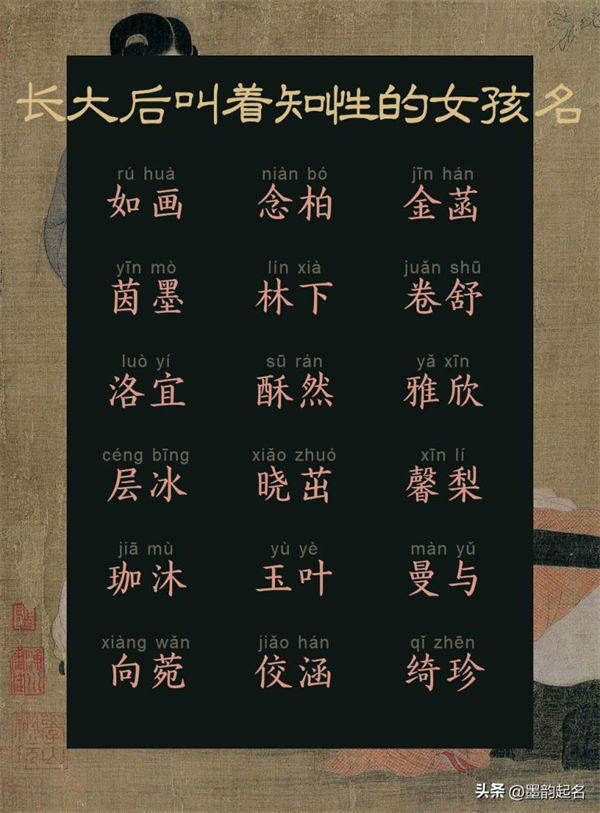 长大后叫着知性的女孩名
rú huà niàn bó jīn hán
如画 念柏 金菡
yīn mò lín xià juǎn shū
茵墨 林下 卷舒
luò yí sū rán yǎ xīn
洛宜 酥然 雅欣
céng bīng xiǎo zhuó xīn lí
层冰 晓茁 馨梨
jiā mù yù yè màn yǔ
珈沐 玉叶 曼与
xiàng wǎn jiǎo hán qǐ zhēn
向菀 佼涵 绮珍
头条 @墨韵起名